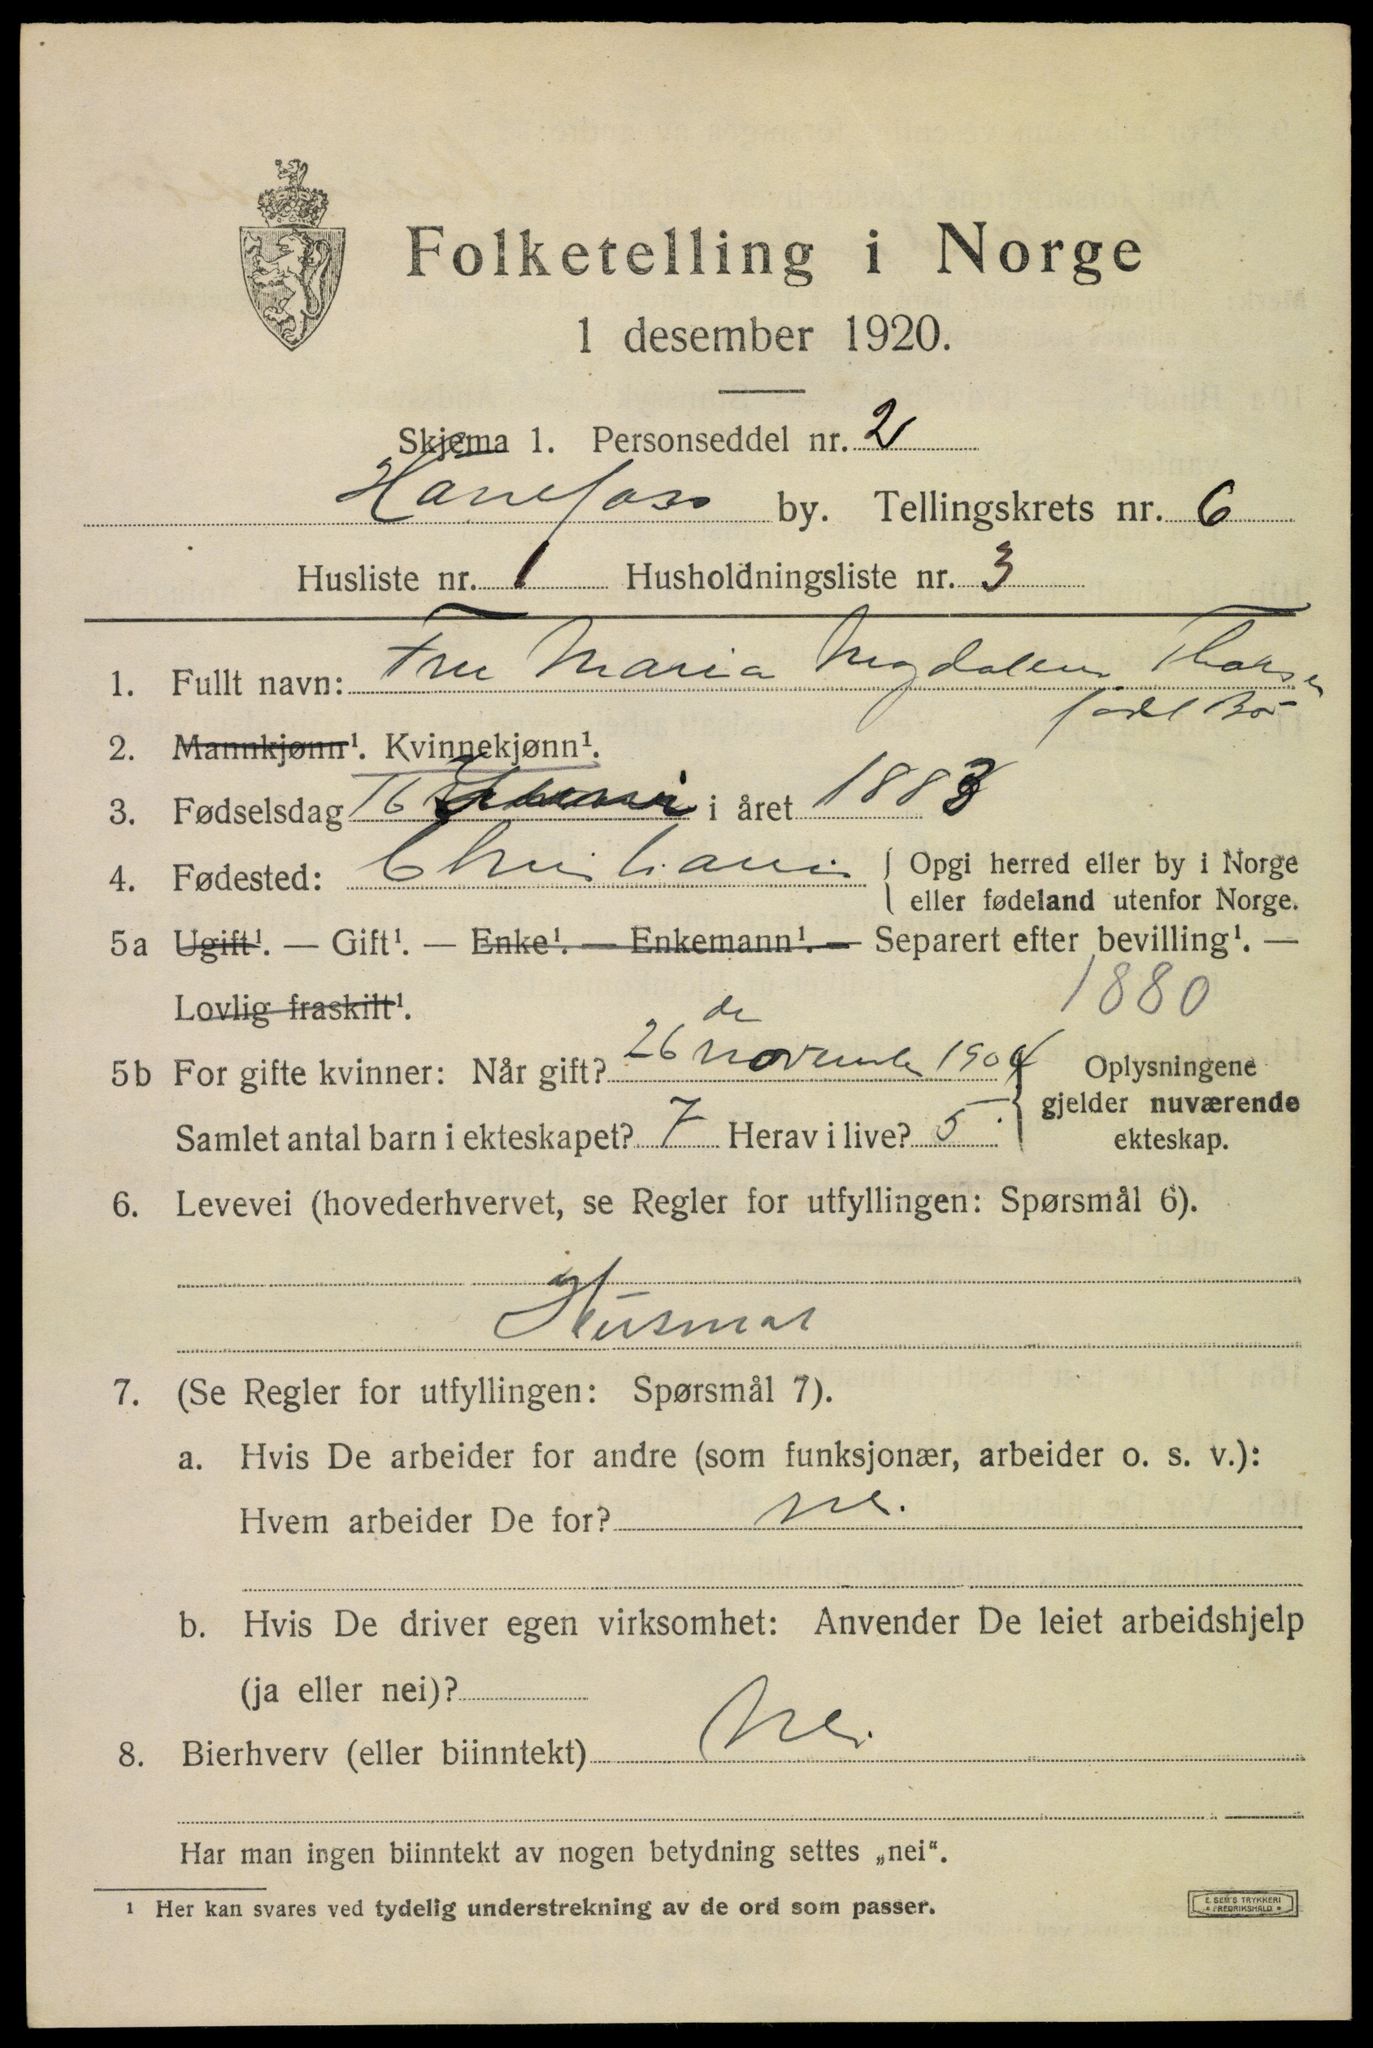 Folketelling i Norge
1 desember 1920.
Skjema 1. Personseddel nr. 2
Hønefoss by. Tellingskrets nr. 6
Husliste nr. 1 Husholdningsliste nr. 3
1. Fullt navn: Fru Maria Magdalena Thorsen
født Bö
2. Mannkjønn¹. Kvinnekjønn¹.
3. Fødselsdag 16 i året 1883
4. Fødested: Christiania { Opgi herred eller by i Norge
eller fødeland utenfor Norge.
5a Ugift¹. — Gift¹. — Enke¹. — Enkemann¹. — Separert efter bevilling¹. —
Lovlig fraskilt¹. 1880
5b For gifte kvinner: Når gift? 26 de november 1904 { Oplysningene
gjelder nuværende
Samlet antal barn i ekteskapet? 7 Herav i live? 5.
ekteskap.
6. Levevei (hovederhvervet, se Regler for utfyllingen: Spørsmål 6).
Husmor
7. (Se Regler for utfyllingen: Spørsmål 7).
a. Hvis De arbeider for andre (som funksjonær, arbeider o. s. v.):
Hvem arbeider De for? nei.
b. Hvis De driver egen virksomhet: Anvender De leiet arbeidshjelp
(ja eller nei)?
8. Bierhverv (eller biinntekt) Nei
Har man ingen biinntekt av nogen betydning settes „nei“.
¹ Her kan svares ved tydelig understrekning av de ord som passer.
E. SEM'S TRYKKERI
FREDRIKSHALD